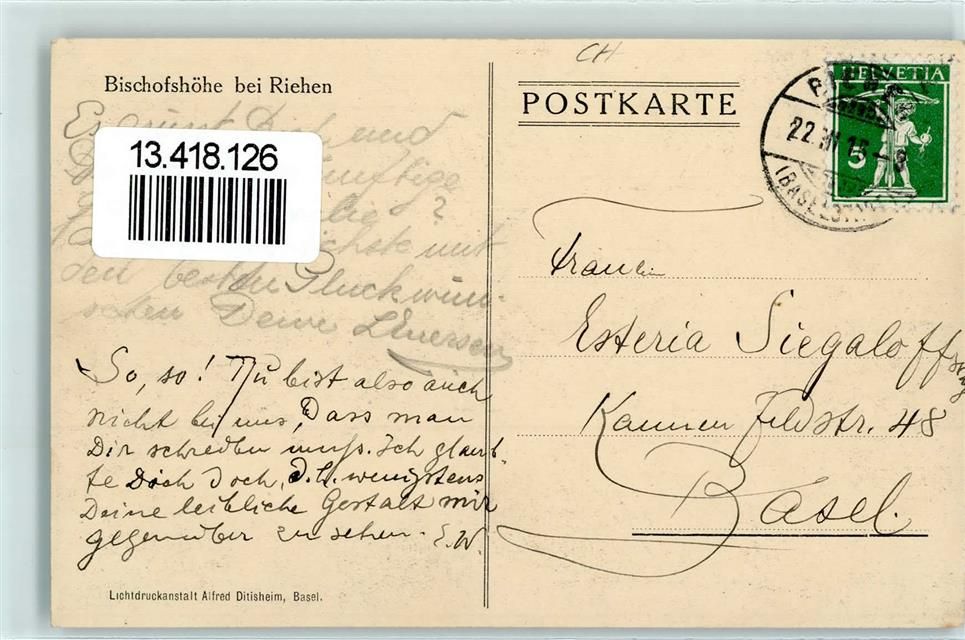 Bischofshöhe bei Riehen
Es grüsst Dich und
13.418.126
den besten Glückwün-
schen Deine
So, so! Du bist also auch
nicht bei uns, Dass man
Dir schreiben muss. Ich glaub-
te Dich doch, d.h. wenigstens
Deine leibliche Gestalt mir
gegenüber zu sehen. E.W.
Lichtdruckanstalt Alfred Ditisheim, Basel.
CH
POSTKARTE
HELVETIA
5
RIEHEN
22.
(BASELSTADT)
Fräulein
Esteria Siegaloff
Kannenfeldstr. 48
Basel.